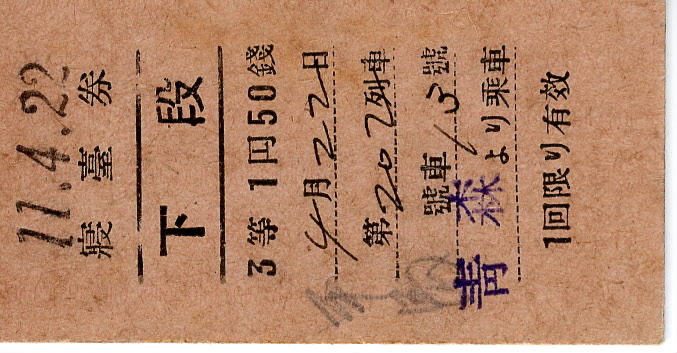 11.4.22
寢臺券
下段
3等1円50錢
4月22日
第202列車
號車 號
青森より乗車
1回限り有效